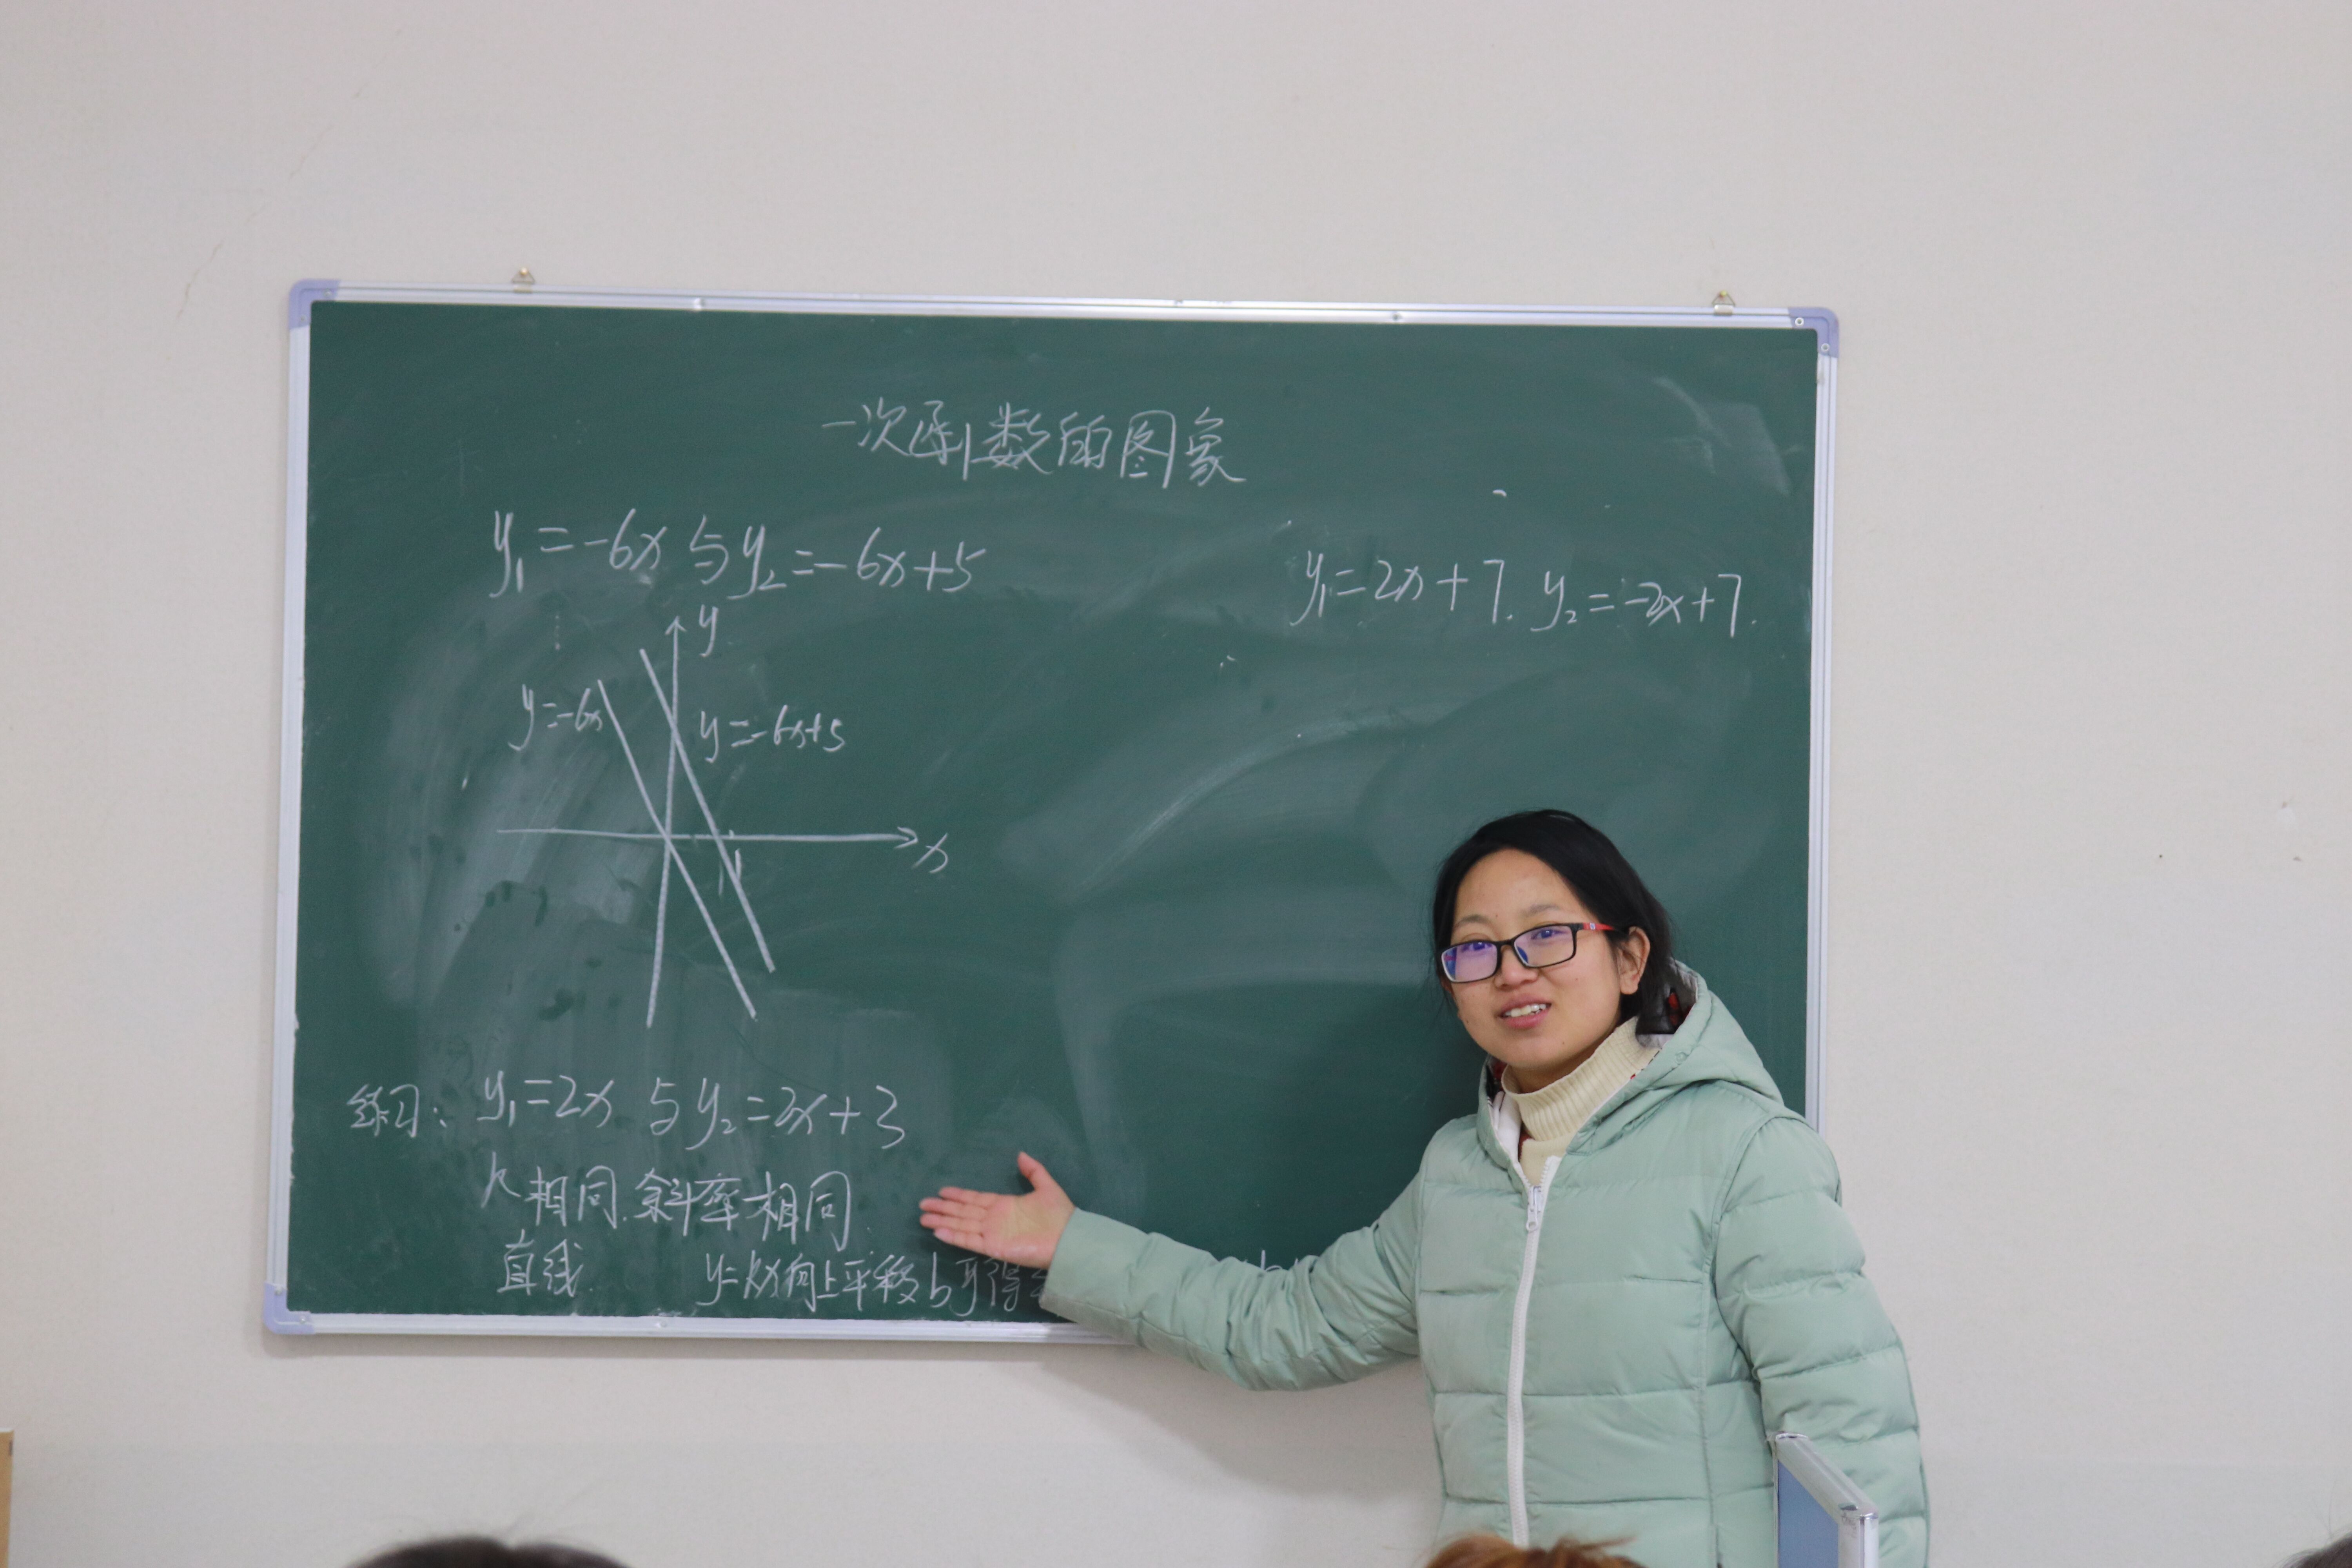 一次函数的图象
y₁=-6x与y₂=-6x+5
y₁=2x+7. y₂=-2x+7.
y
y=-6x
y=-6x+5
x
1
练习: y₁=2x 与y₂=2x+3
k相同.斜率相同.
直线. y=kx向上平移b可得